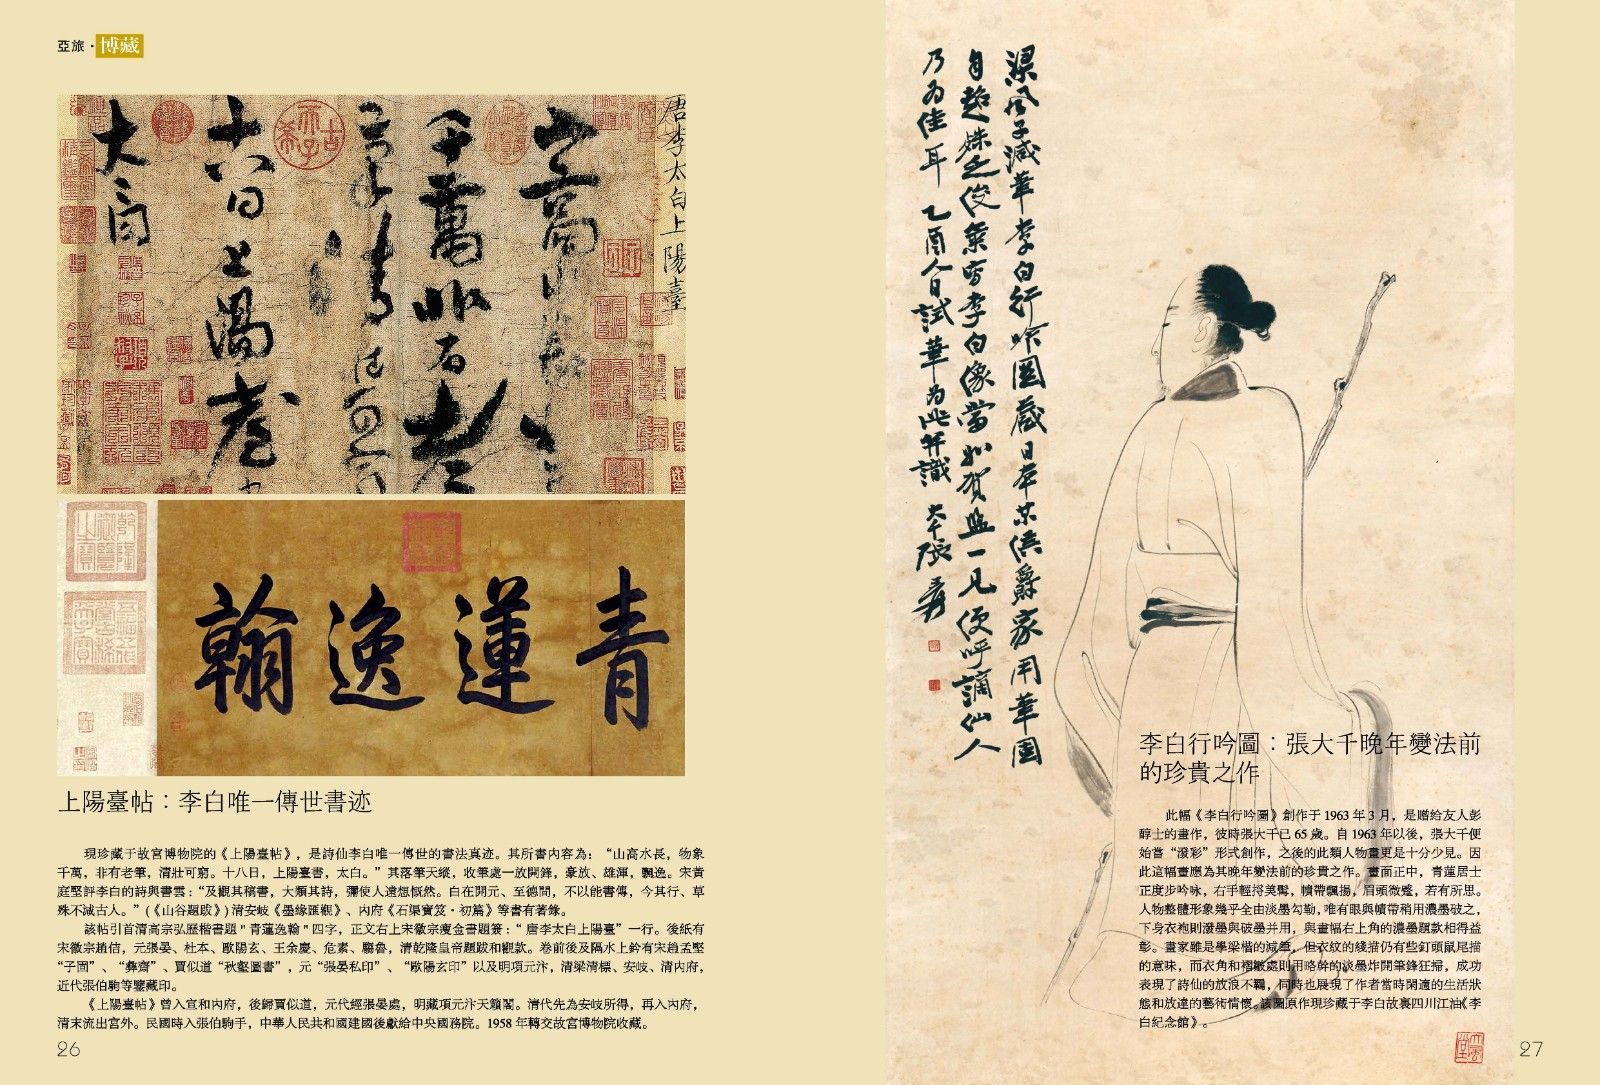 亞旅·博藏
唐李太白上陽臺
山高水長物象
千萬非有老
清壯可
十八日上陽臺書
太白
青蓮逸翰
乾隆御覽之寶
上陽臺帖：李白唯一傳世書迹
現珍藏于故宮博物院的《上陽臺帖》，是詩仙李白唯一傳世的書法真迹。其所書內容為：“山高水長，物象
千萬，非有老筆，清壯可窮。十八日，上陽臺書，太白。”其落筆天縱，收筆處一放開鋒，豪放、雄渾，飄逸。宋黃
庭堅評李白的詩與書雲：“及觀其稿書，大類其詩，彌使人遠想慨然。白在開元、至德間，不以能書傳，今其行、草
殊不減古人。”(《山谷題跋》)清安岐《墨緣匯觀》、內府《石渠寶笈·初篇》等書有著錄。
該帖引首清高宗弘歷楷書題"青蓮逸翰"四字，正文右上宋徽宗瘦金書題簽：“唐李太白上陽臺”一行。後紙有
宋徽宗趙佶，元張晏、杜本、歐陽玄、王余慶、危素、騶魯，清乾隆皇帝題跋和觀款。卷前後及隔水上鈐有宋趙孟堅
“子固”、“彝齋”、賈似道“秋壑圖書”，元“張晏私印”、“歐陽玄印”以及明項元汴，清梁清標、安岐、清內府，
近代張伯駒等鑒藏印。
《上陽臺帖》曾入宣和內府，後歸賈似道，元代經張晏處，明藏項元汴天籟閣。清代先為安岐所得，再入內府，
清末流出宮外。民國時入張伯駒手，中華人民共和國建國後獻給中央國務院。1958年轉交故宮博物院收藏。
26
梁風子減筆李白行吟圖藏日本某侯爵家用筆固
自超妹之俊氣寫李白像當如賀監一見便呼謫仙人
乃為佳耳 乙酉人日試筆為此並識 大千張爰
李白行吟圖：張大千晚年變法前
的珍貴之作
此幅《李白行吟圖》創作于1963年3月，是贈給友人彭
醇士的畫作，彼時張大千已65歲。自1963年以後，張大千便
始嘗“潑彩”形式創作，之後的此類人物畫更是十分少見。因
此這幅畫應為其晚年變法前的珍貴之作。畫面正中，青蓮居士
正度步吟咏，右手輕捋美髯，幘帶飄揚，眉頭微蹙，若有所思。
人物整體形象幾乎全由淡墨勾勒，唯有眼與幘帶稍用濃墨破之，
下身衣袍則潑墨與破墨并用，與畫幅右上角的濃墨題款相得益
彰。畫家雖是學梁楷的減筆，但衣紋的綫描仍有些釘頭鼠尾描
的意味，而衣角和褶皺處則用略幹的淡墨炸開筆鋒狂掃，成功
表現了詩仙的放浪不羈，同時也展現了作者當時閑適的生活狀
態和放達的藝術情懷。該圖原作現珍藏于李白故裏四川江油《李
白紀念館》。
大風堂
27